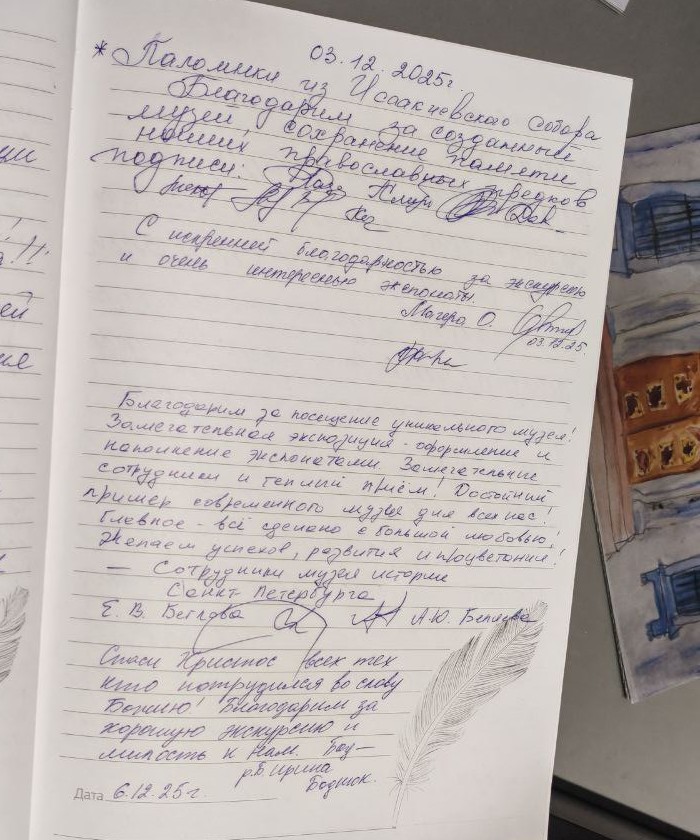 03.12.2025г.
* Паломники из Исаакиевского собора
Благодарим за созданный
музей сохранение памяти
наших православных предков
подписи:
С искренней благодарностью за экскурсию
и очень интересные экспонаты.
Магера О.
03.12.25.
Благодарим за посещение уникального музея!
Замечательная экспозиция - оформление и
наполнение экспонатами. Замечательные
сотрудники и теплый приём! Достойный
пример современного музея для всех нас!
Главное - всё сделано с большой любовью!
Желаем успехов, развития и процветания!
— Сотрудники музея истории
Санкт Петербурга
Е. В. А.Ю.
Спаси Христос всех тех
кто потрудился во славу
Божию! Благодарим за
хорошую экскурсию и
милость к нам.
р.Б. Ирина
Дата 6.12.25г.